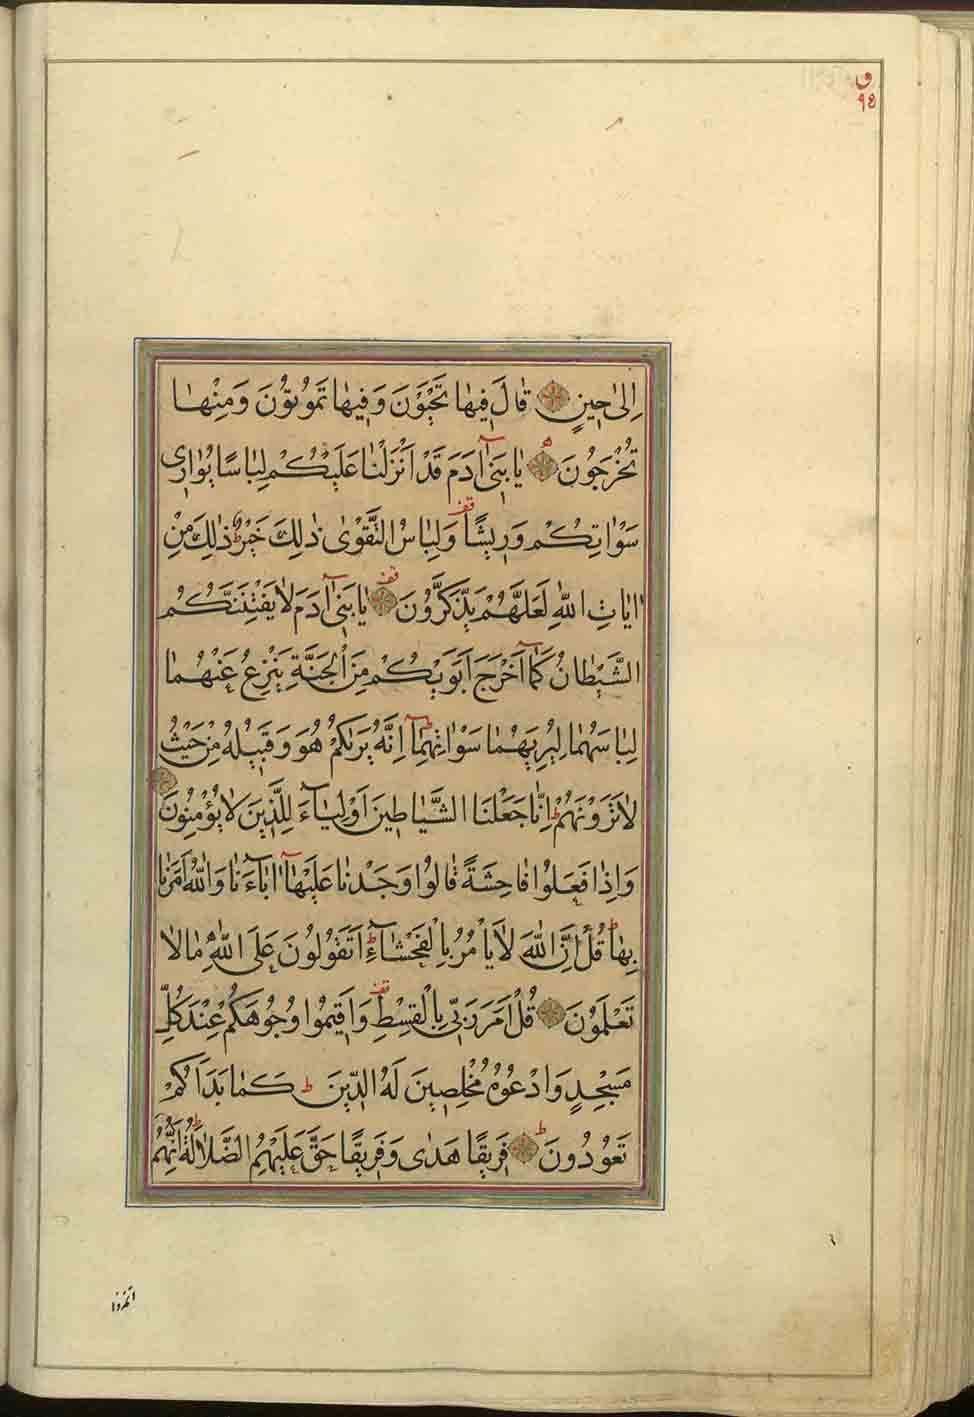 ق
٩٤
اِلىٰ حٖينٍ قٰالَ فٖيهٰا تَحْيَوْنَ وَفٖيهٰا تَمُوتُونَ وَمِنْهٰا
تُخْرَجُونَ يٰا بَنٖى اٰدَمَ قَدْ اَنْزَلْنٰا عَلَيْكُمْ لِبٰاسًا يُوٰارٖى
سَوْاٰتِكُمْ وَرٖيشًا قف وَلِبٰاسُ التَّقْوٰى ذٰلِكَ خَيْرٌ ط ذٰلِكَ مِنْ
اٰيٰاتِ اللّٰهِ لَعَلَّهُمْ يَذَّكَّرُونَ قف يٰا بَنٖى اٰدَمَ لٰا يَفْتِنَنَّكُمُ
الشَّيْطٰانُ كَمٰا اَخْرَجَ اَبَوَيْكُمْ مِنَ الْجَنَّةِ يَنْزِعُ عَنْهُمٰا
لِبٰاسَهُمٰا لِيُرِيَهُمٰا سَوْاٰتِهِمٰا ط اِنَّهُ يَرٰيكُمْ هُوَ وَقَبٖيلُهُ مِنْ حَيْثُ
لٰا تَرَوْنَهُمْ ط اِنّٰا جَعَلْنَا الشَّيٰاطٖينَ اَوْلِيٰاۤءَ لِلَّذٖينَ لٰا يُؤْمِنُونَ
وَاِذٰا فَعَلُوا فٰاحِشَةً قٰالُوا وَجَدْنٰا عَلَيْهٰا اٰبٰاۤءَنٰا وَاللّٰهُ اَمَرَنٰا
بِهٰا ط قُلْ اِنَّ اللّٰهَ لٰا يَاْمُرُ بِالْفَحْشٰاۤءِ ط اَتَقُولُونَ عَلَى اللّٰهِ مٰا لٰا
تَعْلَمُونَ قُلْ اَمَرَ رَبّٖى بِالْقِسْطِ قف وَاَقٖيمُوا وُجُوهَكُمْ عِنْدَ كُلِّ
مَسْجِدٍ وَادْعُوهُ مُخْلِصٖينَ لَهُ الدّٖينَ ط كَمٰا بَدَاَكُمْ
تَعُودُونَ ط فَرٖيقًا هَدٰى وَفَرٖيقًا حَقَّ عَلَيْهِمُ الضَّلٰالَةُ ط اِنَّهُمُ
اتخذوا